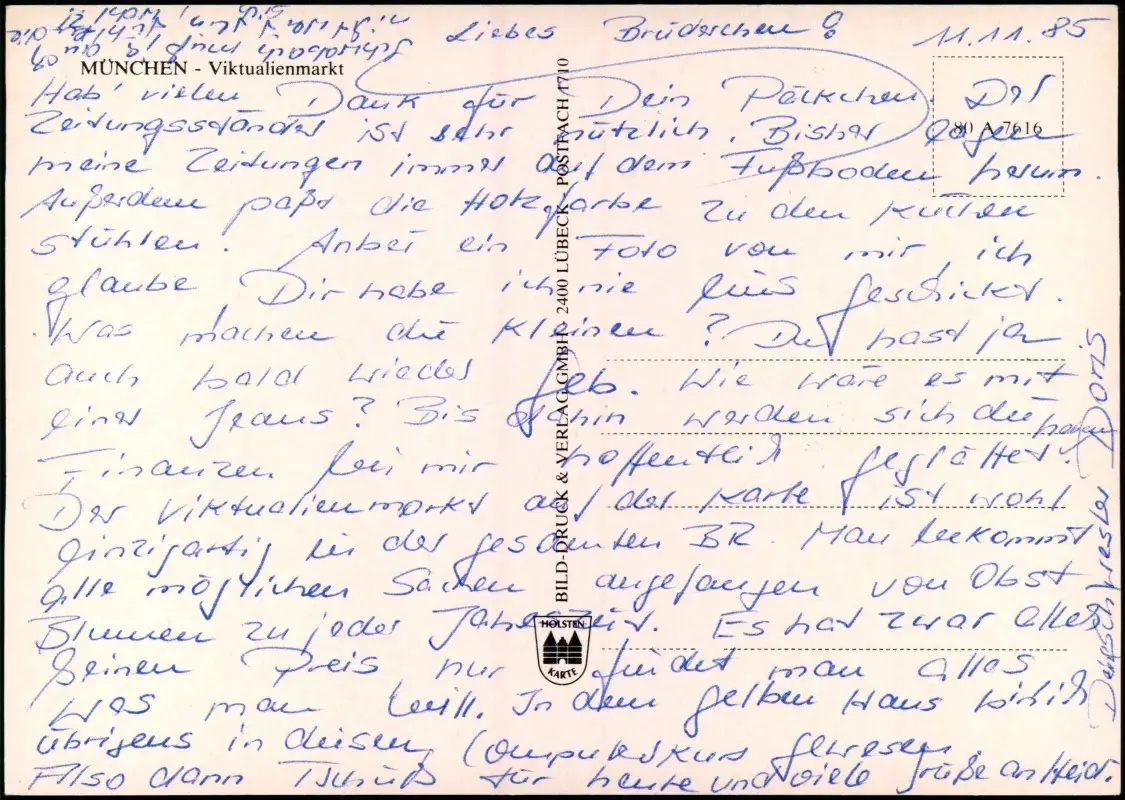 Liebes Brüderchen! 11.11.85
MÜNCHEN - Viktualienmarkt
80 A 7616
Hab' vielen Dank für Dein Päckchen. Der
Zeitungsständer ist sehr nützlich. Bisher lagen
meine Zeitungen immer auf dem Fußboden herum.
Außerdem paßt die Holzfarbe zu den Küchen
stühlen. Anbei ein Foto von mir, ich
glaube Dir habe ich nie eins geschickt.
Was machen die Kleinen? Du hast ja
auch bald wieder Geb. Wie wäre es mit
einer Jeans? Bis dahin werden sich die
Finanzen bei mir hoffentlich geglättet haben.
Der Viktualienmarkt auf der Karte ist wohl
einzigartig in der gesamten BR. Man bekommt
alle möglichen Sachen angefangen von Obst
Blumen zu jeder Jahreszeit. Es hat zwar alles
seinen Preis nur findet man alles
was man will. In dem gelben Haus bin ich
übrigens in diesem Computerkurs gewesen.
Also dann Tschüß für heute und viele Grüße an Heid.
Deine Schwester Doris
BILD-DRUCK & VERLAG GMBH · 2400 LÜBECK · POSTFACH 1710
HOLSTEN
KARTE